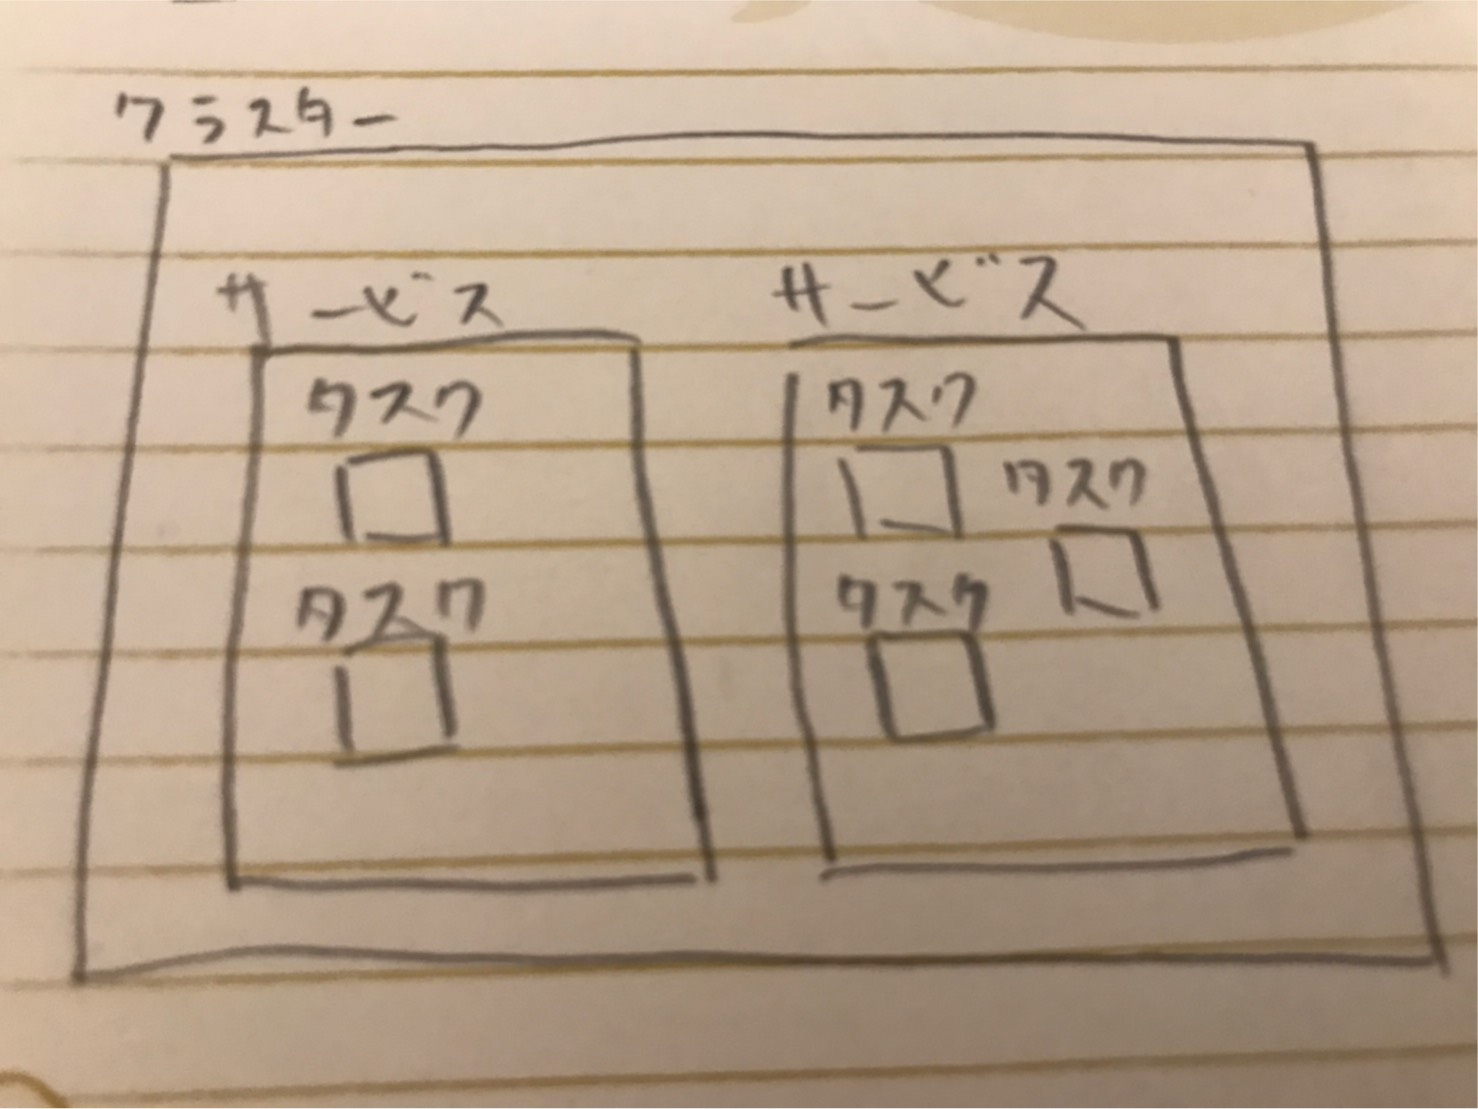 クラスター
サービス
タスク
タスク
サービス
タスク
タスク
タスク